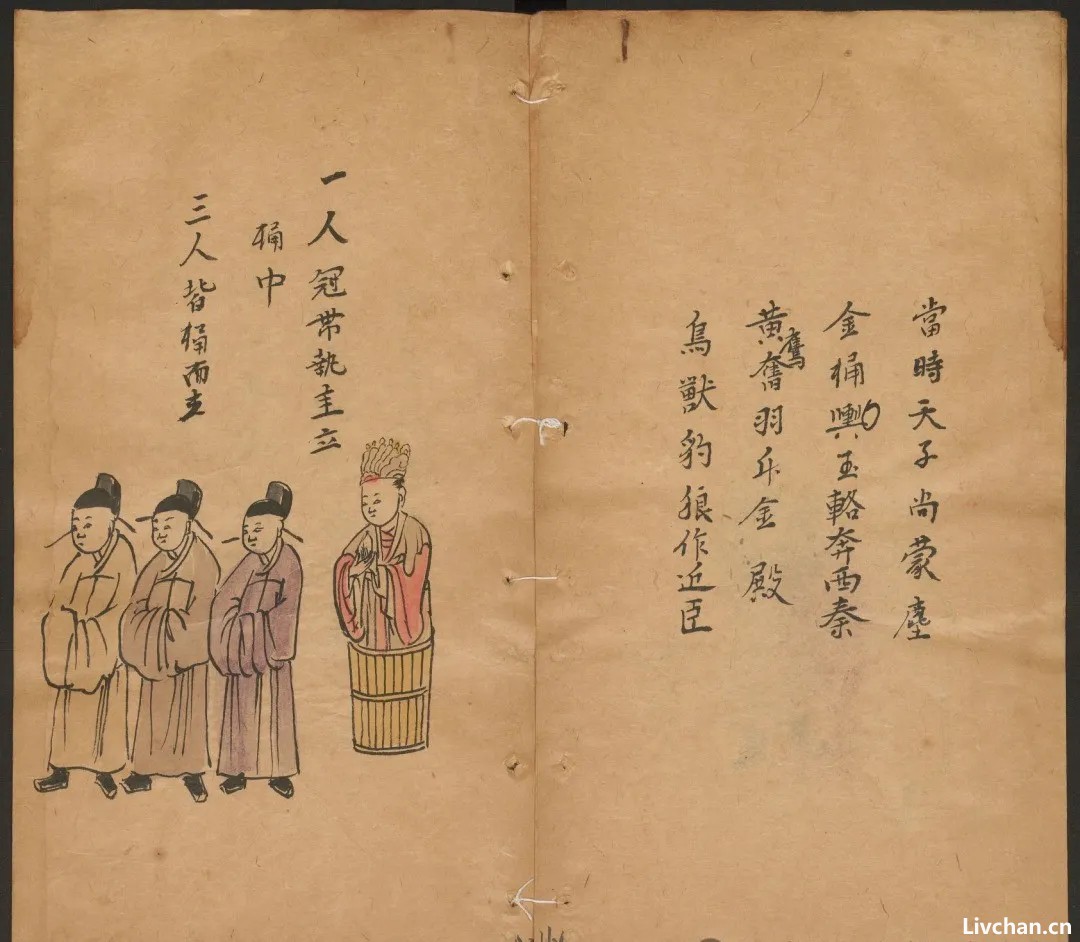 當時天子尚蒙塵
金桶輿玉輅奔西秦
黄鹰奮羽升金殿
鳥獸豹狼作近臣
一人冠带執圭立
桶中
三人皆桶而立
Livchan.cn